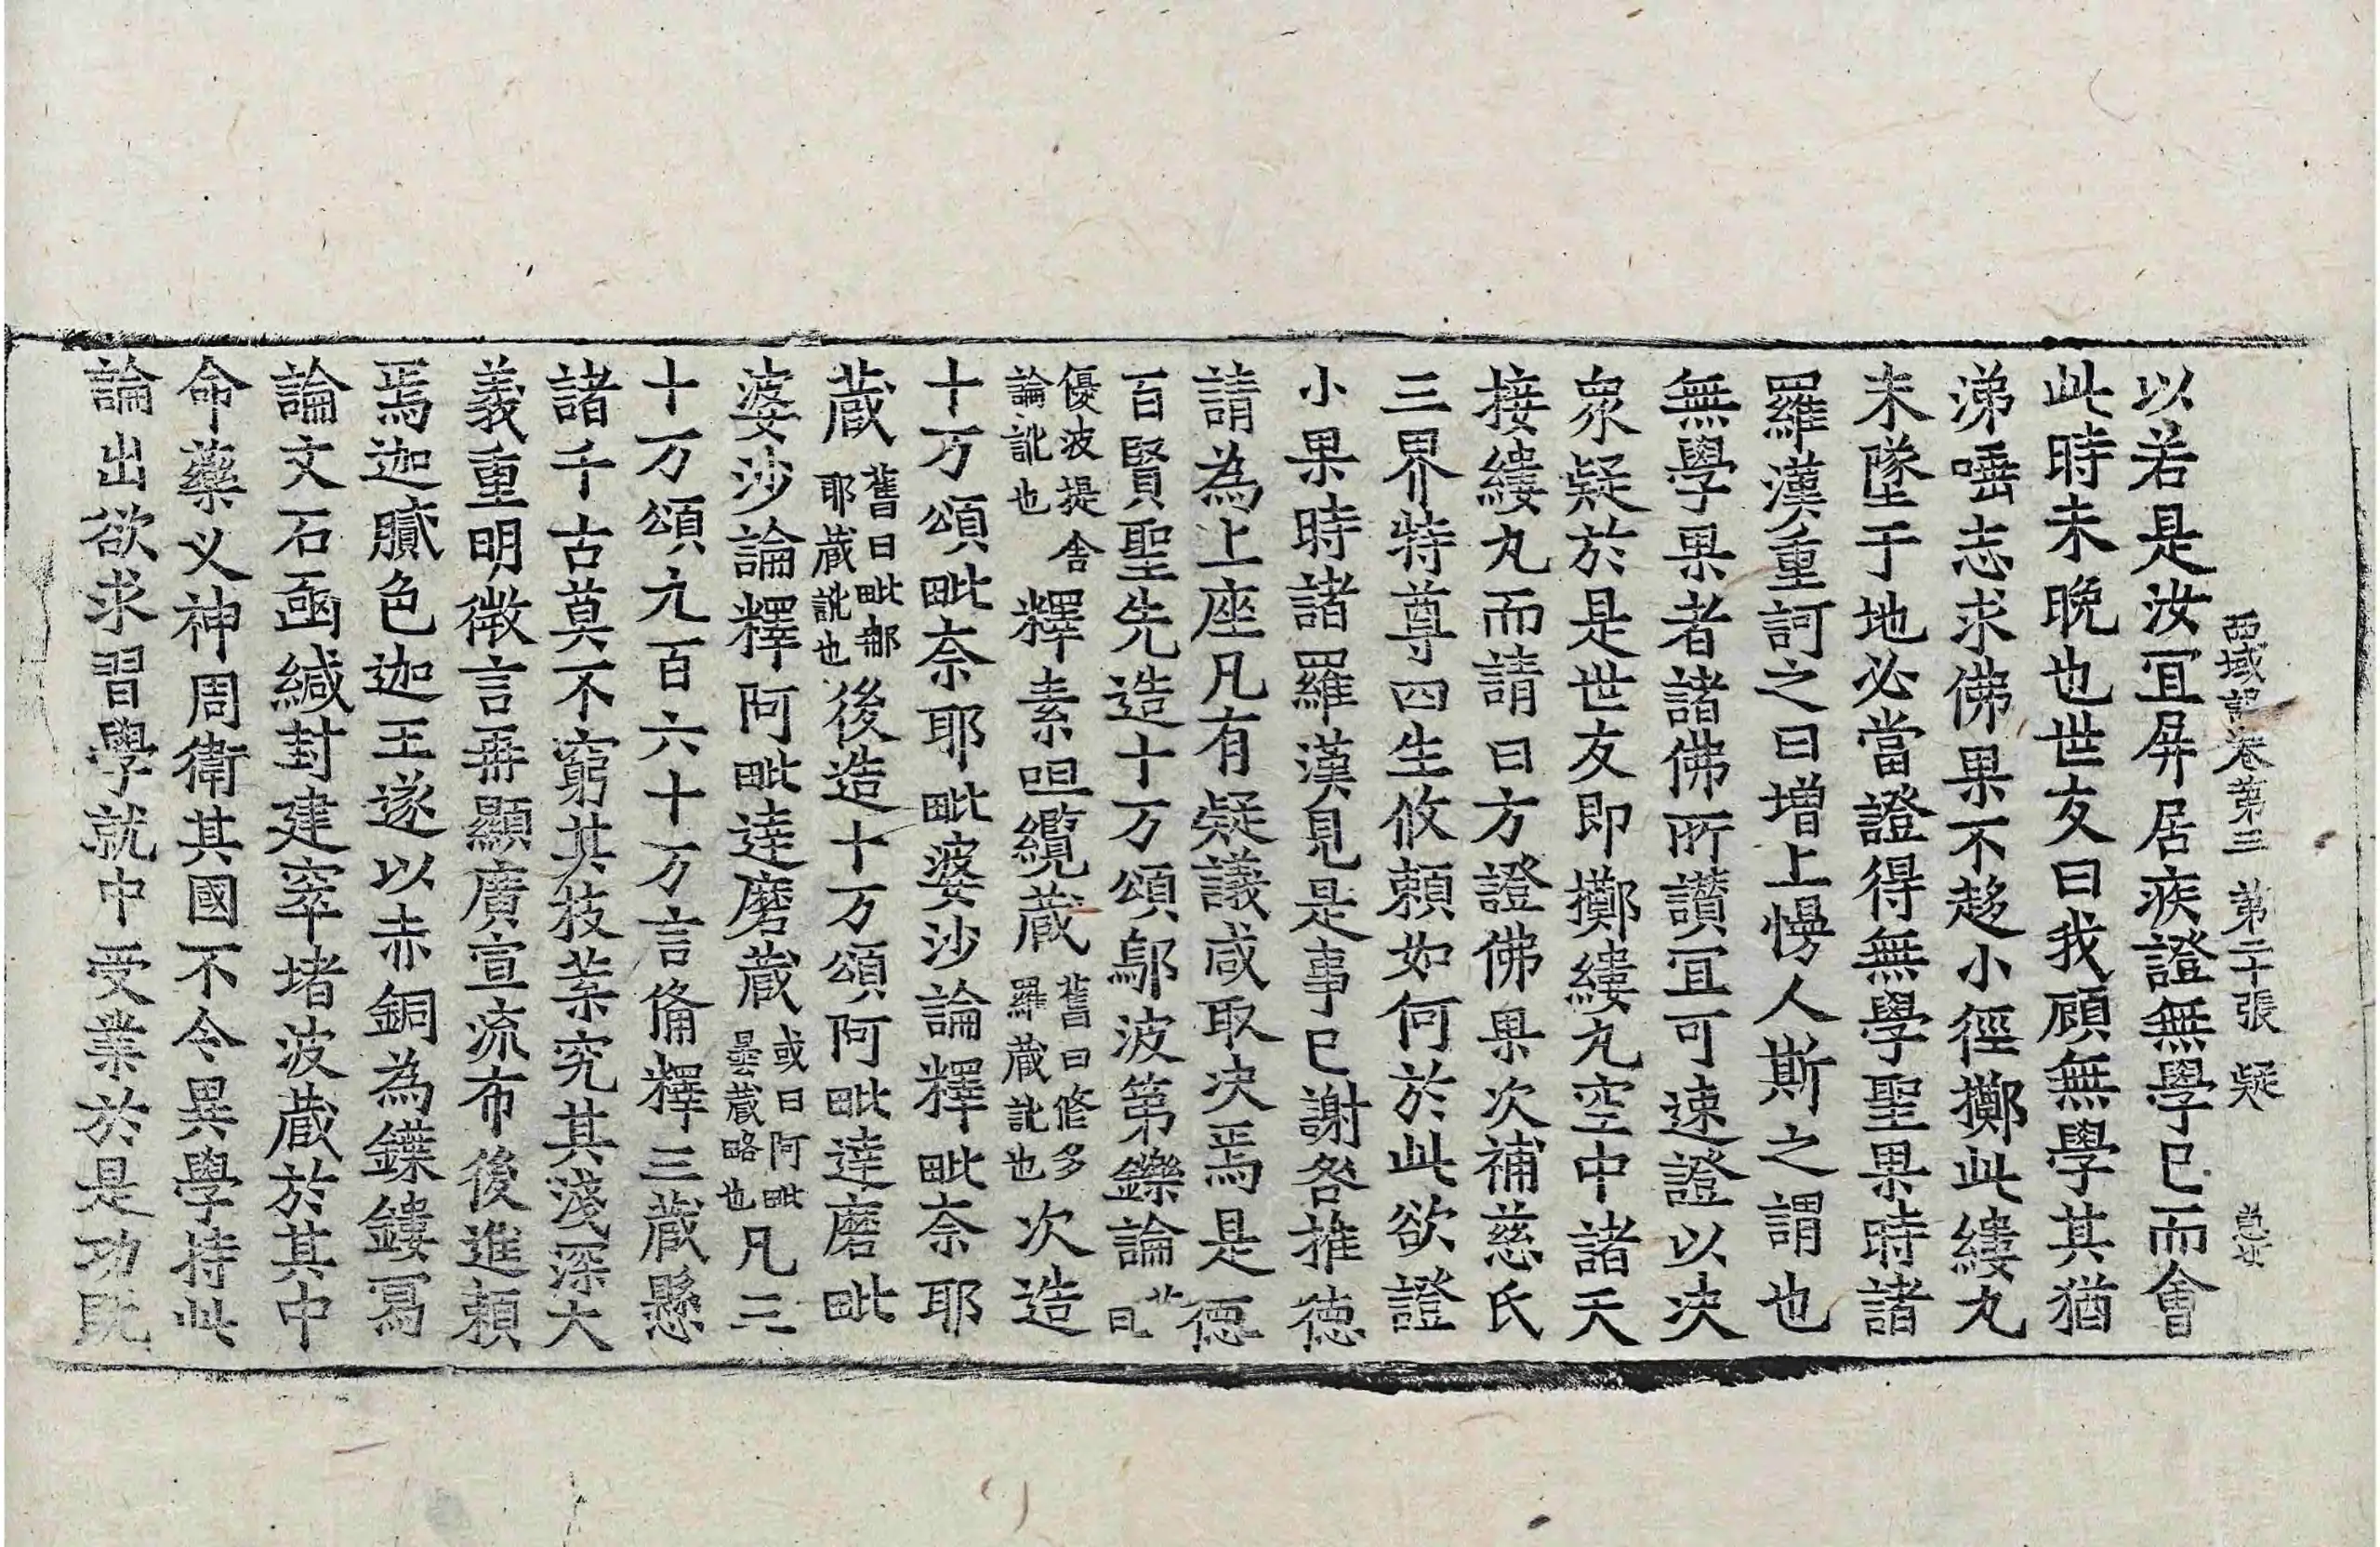 西域記卷第三　第二十張　疑
以若是汝冝屏居疾證無學已而會
此時未晩也世友曰我顧無學其猶
涕唾志求佛果不趍小徑擲此縷丸
未墜于地必當證得無學聖果時諸
羅漢重訶之曰增上慢人斯之謂也
無學果者諸佛所讃冝可速證以决
衆疑於是世友即擲縷丸空中諸天
接縷丸而請曰方證佛果次補慈氏
三界特尊四生攸頼如何於此欲證
小果時諸羅漢見是事已謝咎推德
請為上座凡有疑議咸取决焉是德
百賢聖先造十万頌鄔波第鑠論曰
優波提舍
論訛也
釋素呾纜蔵
舊曰修多
羅蔵訛也
次造
十万頌毗奈耶毗婆沙論釋毗奈耶
蔵
舊曰毗那
耶蔵訛也
後造十万頌阿毗達磨毗
婆沙論釋阿毗達磨蔵
或曰阿毗
曇蔵略也
凡三
十万頌九百六十万言俻釋三蔵懸
諸千古莫不窮其枝葉究其淺深大
義重明微言再顯廣宣流布後進頼
焉迦膩色迦王遂以赤銅為鍱鏤寫
論文石凾緘封建窣堵波蔵於其中
命藥叉神周衛其國不令異學持此
論出欲求習學就中受業於是功既